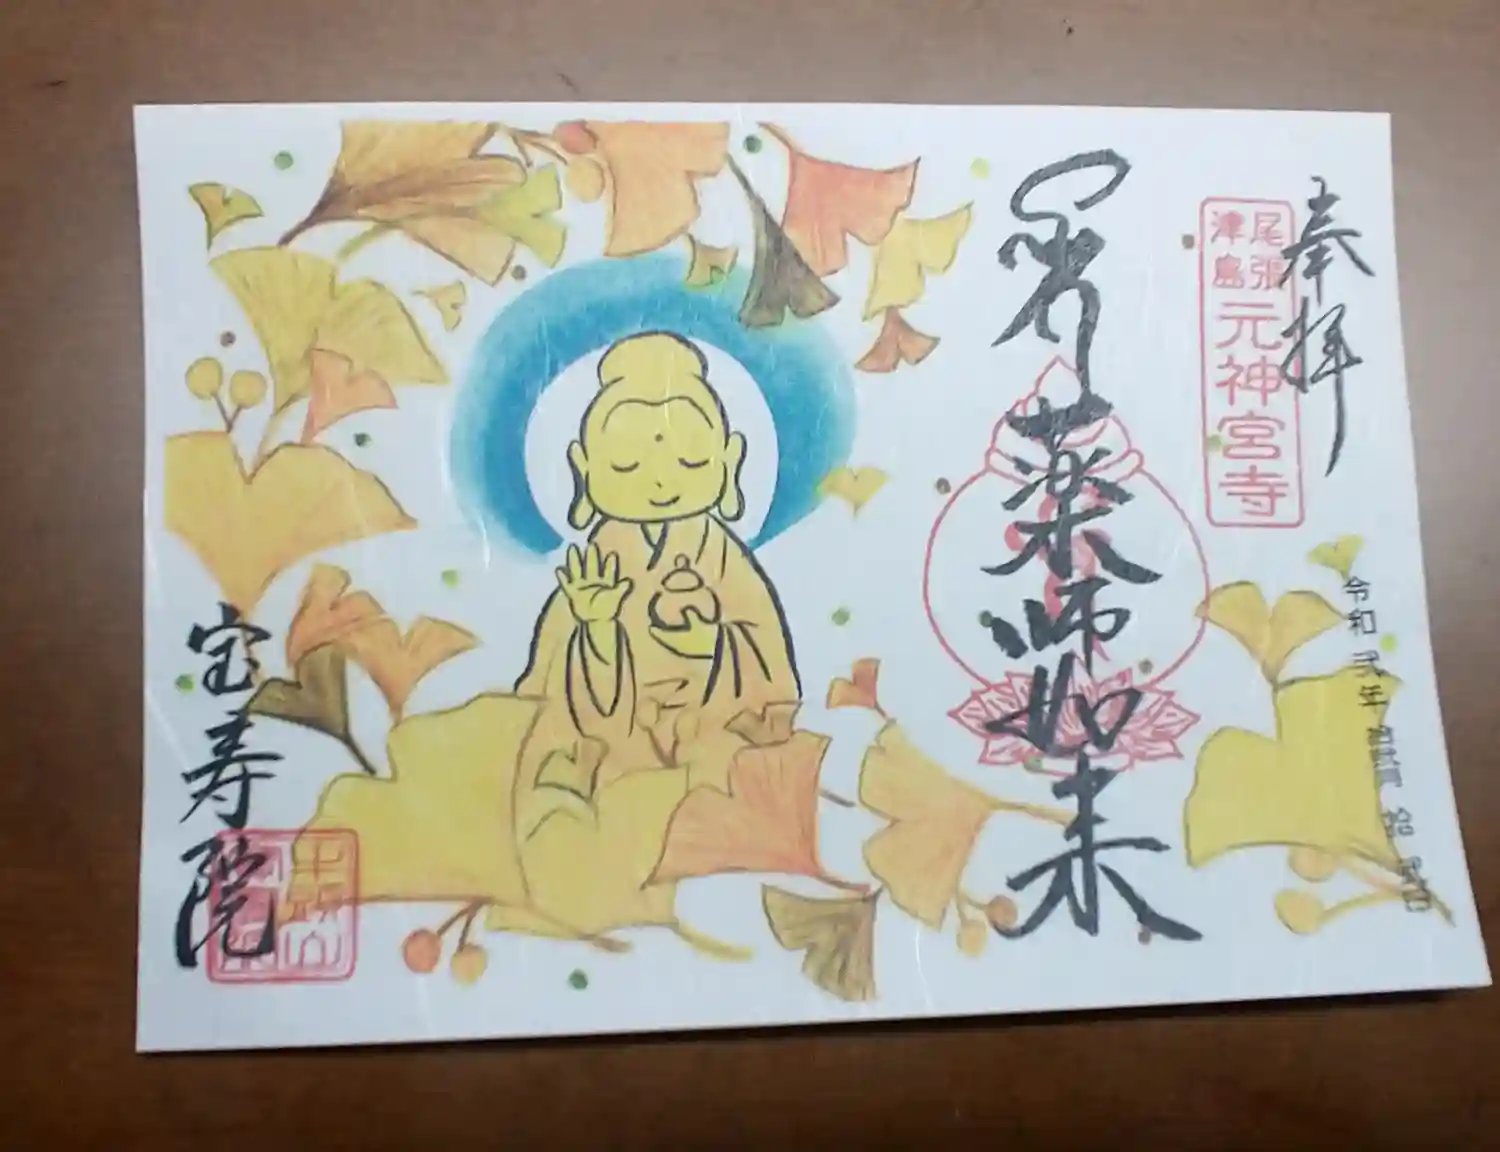 奉拝
尾張
津島
元神宮寺
薬師如来
令和弐年
宝寿院